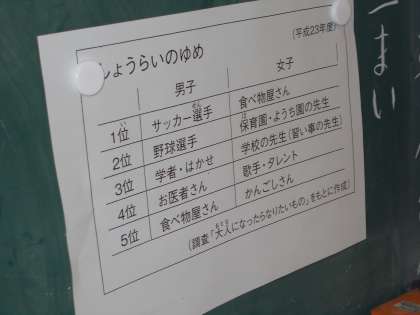 しょうらいのゆめ
(平成23年度)
男子 女子
1位 サッカー選手 食べ物屋さん
2位 野球選手 保育園・ようち園の先生
3位 学者・はかせ 学校の先生(習い事の先生)
4位 お医者さん 歌手・タレント
5位 食べ物屋さん かんごしさん
(調査「大人になったらなりたいもの」をもとに作成)